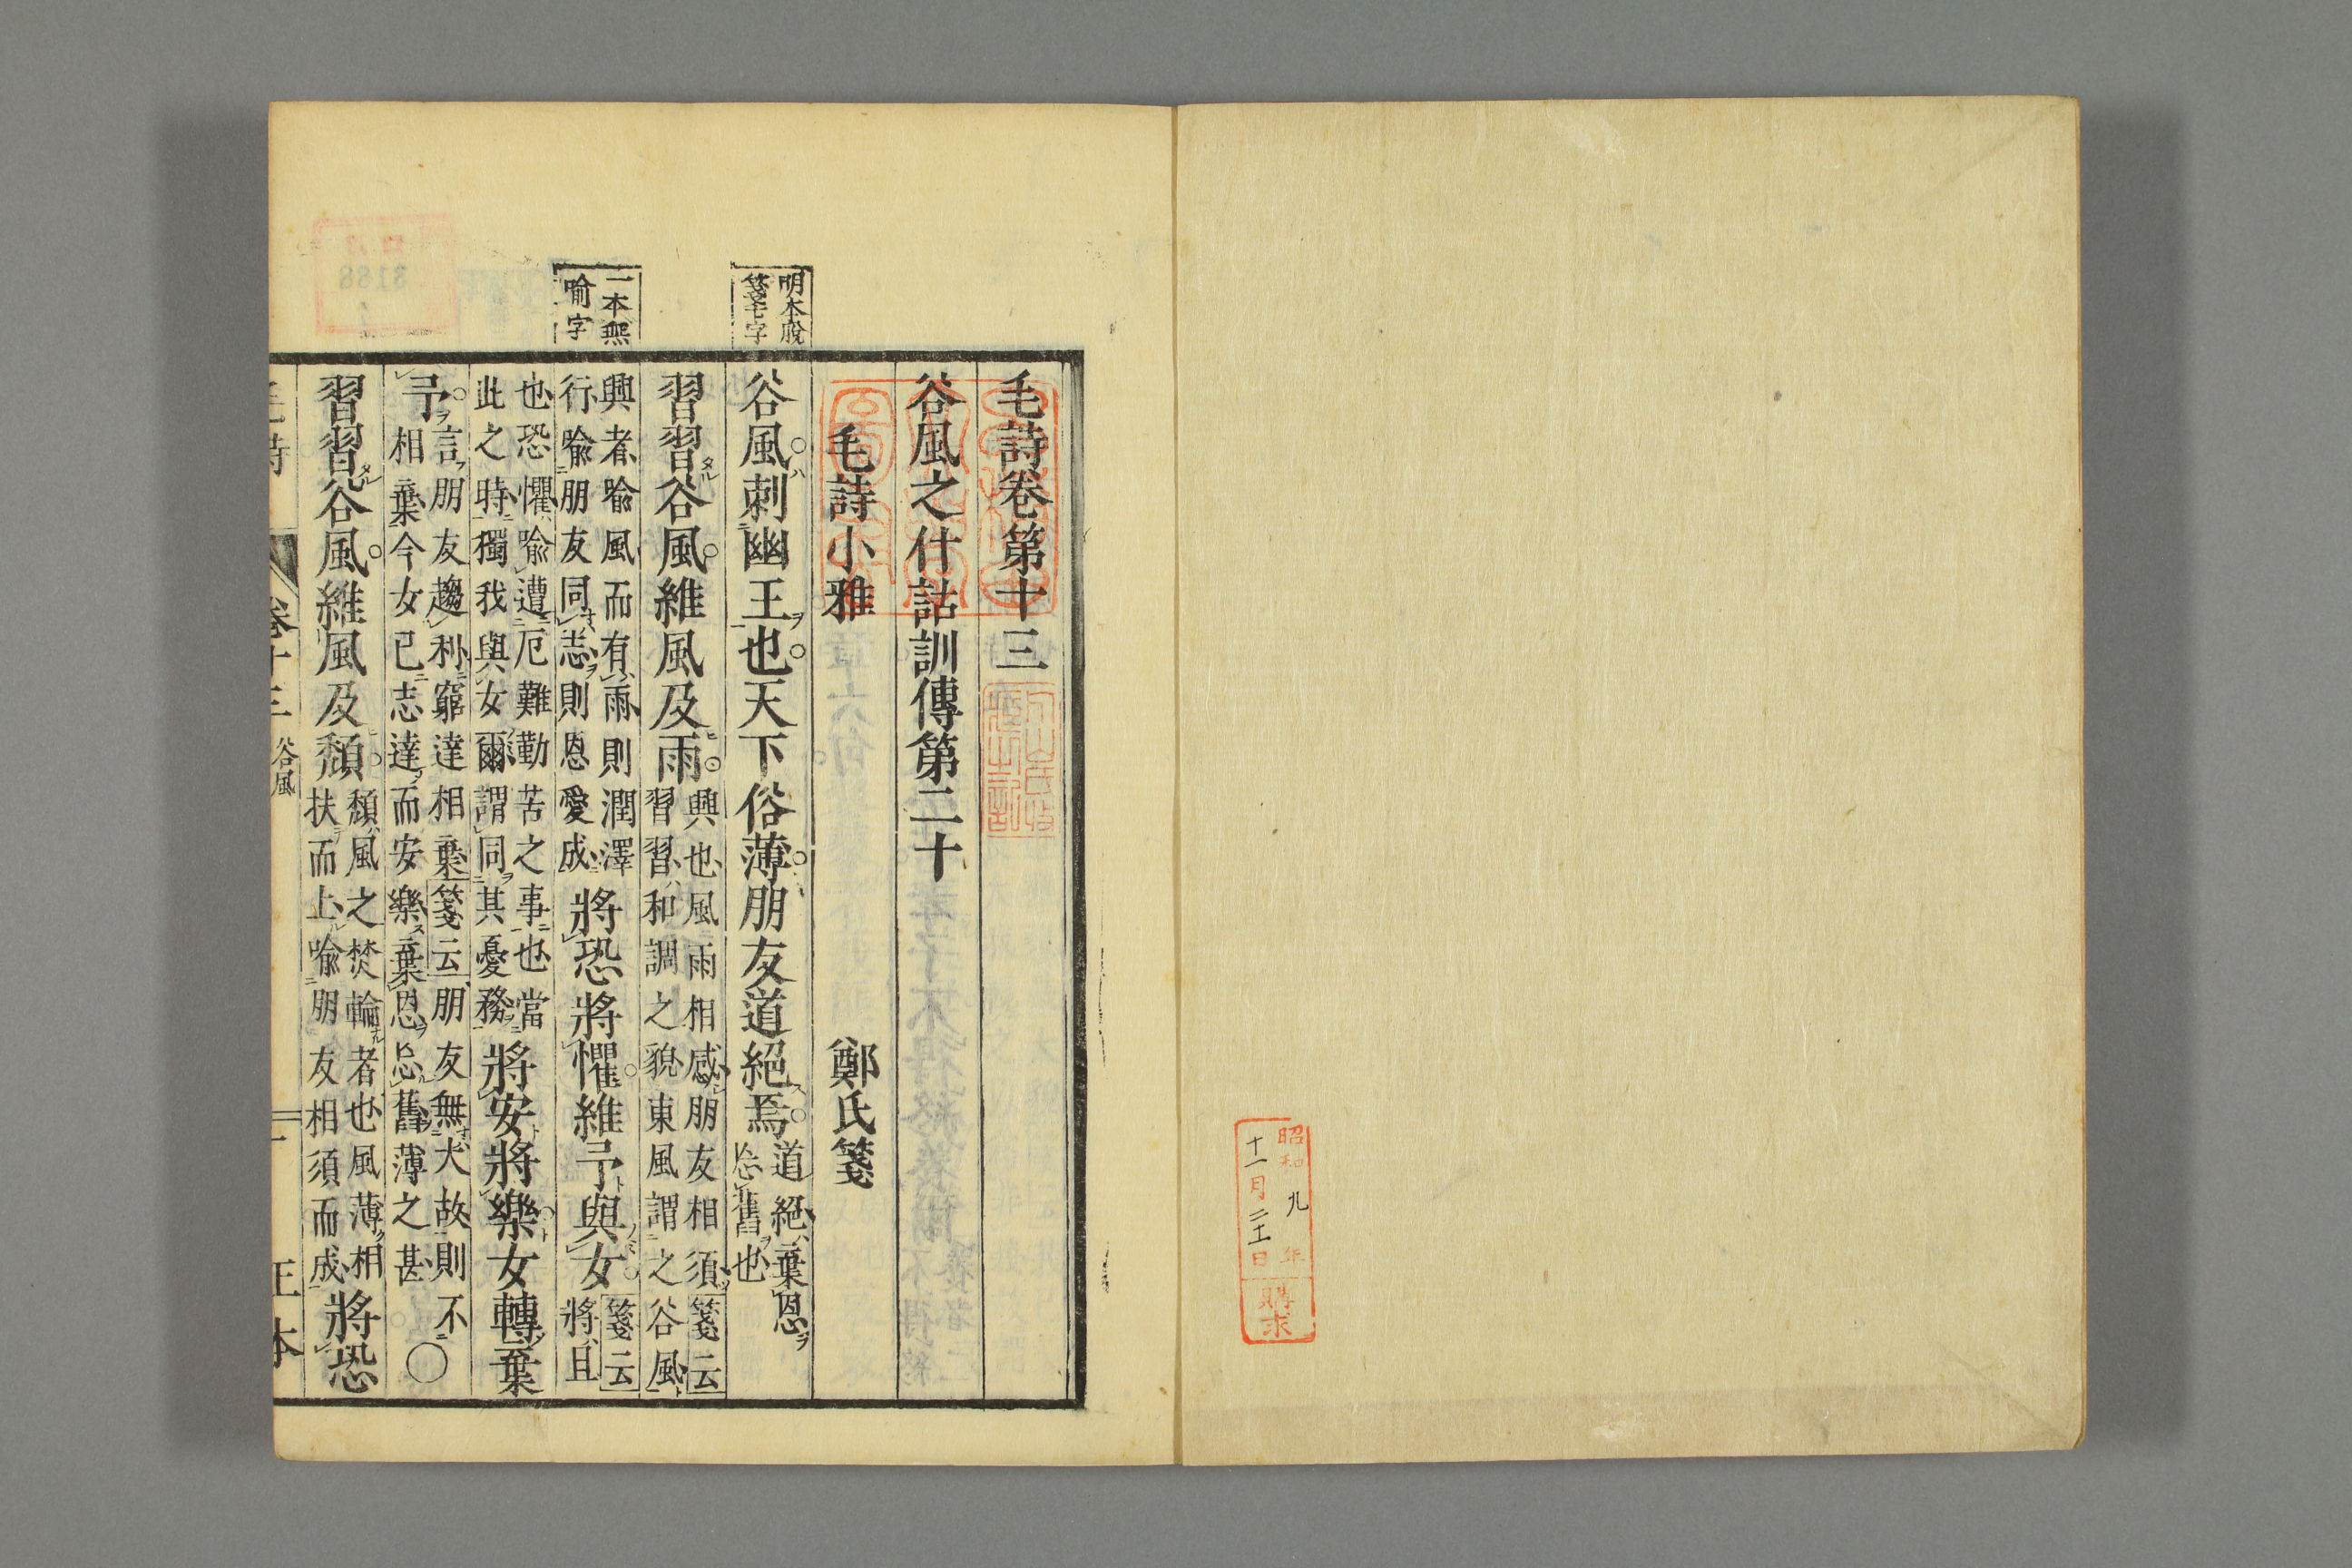 昭和九年
十一月二十一日
購求
明本脫
箋云字
一本無
喻字
毛詩卷第十三
谷風之什詁訓傳第二十
毛詩小雅 鄭氏箋
谷風刺幽王也天下俗薄朋友道絕焉
道絕棄恩
忘舊也
習習谷風維風及雨
興也風雨相感朋友相須箋云
習習和調之貌東風謂之谷風
興者喻風而有雨則潤澤
行喻朋友同志則恩愛成
將恐將懼維予與女
箋云
將且
也恐懼喻遭厄難勤苦之事也當
此之時獨我與女爾謂同其憂務
將安將樂女轉棄
予
言朋友趨利窮達相棄箋云朋友無大故則不
相棄今女已志達而安樂棄恩忘舊薄之甚
○
習習谷風維風及頹
頹風之焚輪者也風薄相
扶而上喻朋友相須而成
將恐
毛詩 卷十三 谷風 一